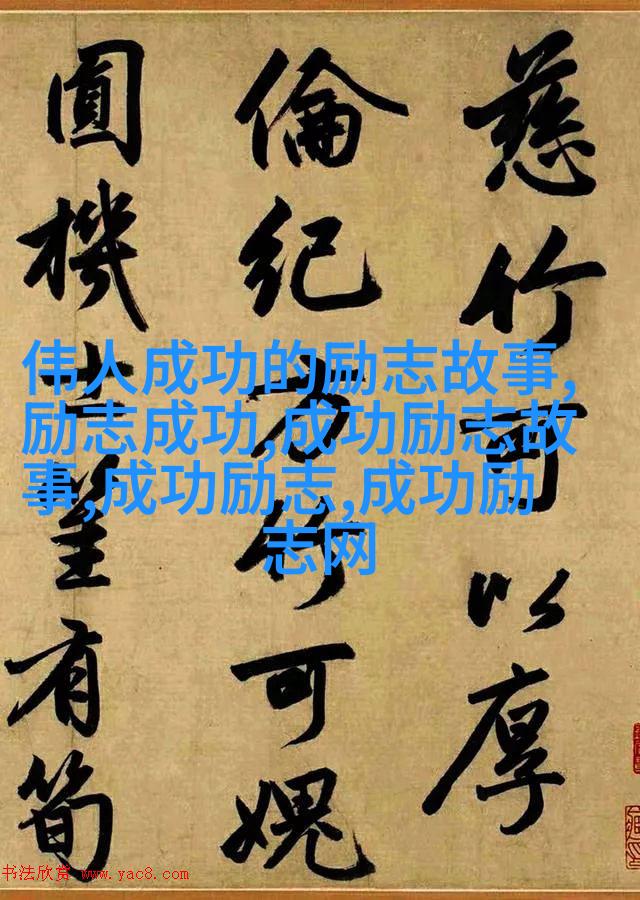 慈竹可以厚
倫紀方竹可媿
圓機士有筍
伟人成功的励志故事,
励志成功,成功励志故
事,成功励志,成功励
志网
书法欣赏 www.yac8.com